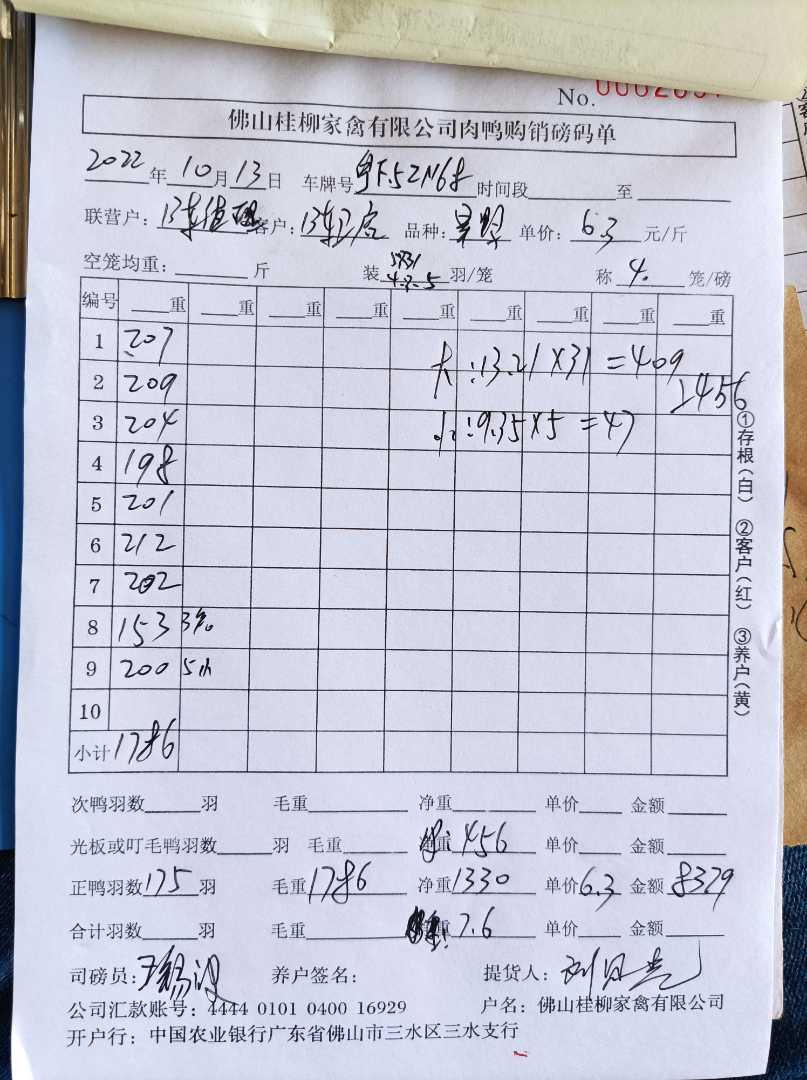 No.
佛山桂柳家禽有限公司肉鸭购销磅码单
2022年10月13日 车牌号 时间段 至
联营户: 客户: 品种: 单价: 6.3 元/斤
空笼均重: 斤 装 5×31 4.2.5 羽/笼 称 4. 笼/磅
编号 重 重 重 重 重 重 重 重 重
1 207 大:13.21×31=409
2 209 456
3 204 小:9.35×5=47
4 198
5 201
6 212
7 202
8 153 3个
9 200 5小
10
小计 1786
①存根(白) ②客户(红) ③养户(黄)
次鸭羽数 羽 毛重 净重 单价 金额
光板或叮毛鸭羽数 羽 毛重 净重 456 单价 金额
正鸭羽数175羽 毛重1786 净重1330 单价6.3 金额8379
合计羽数 羽 毛重 重 7.6 单价 金额
司磅员: 养户签名: 提货人:
公司汇款账号: 4444 0101 0400 16929 户名: 佛山桂柳家禽有限公司
开户行: 中国农业银行广东省佛山市三水区三水支行